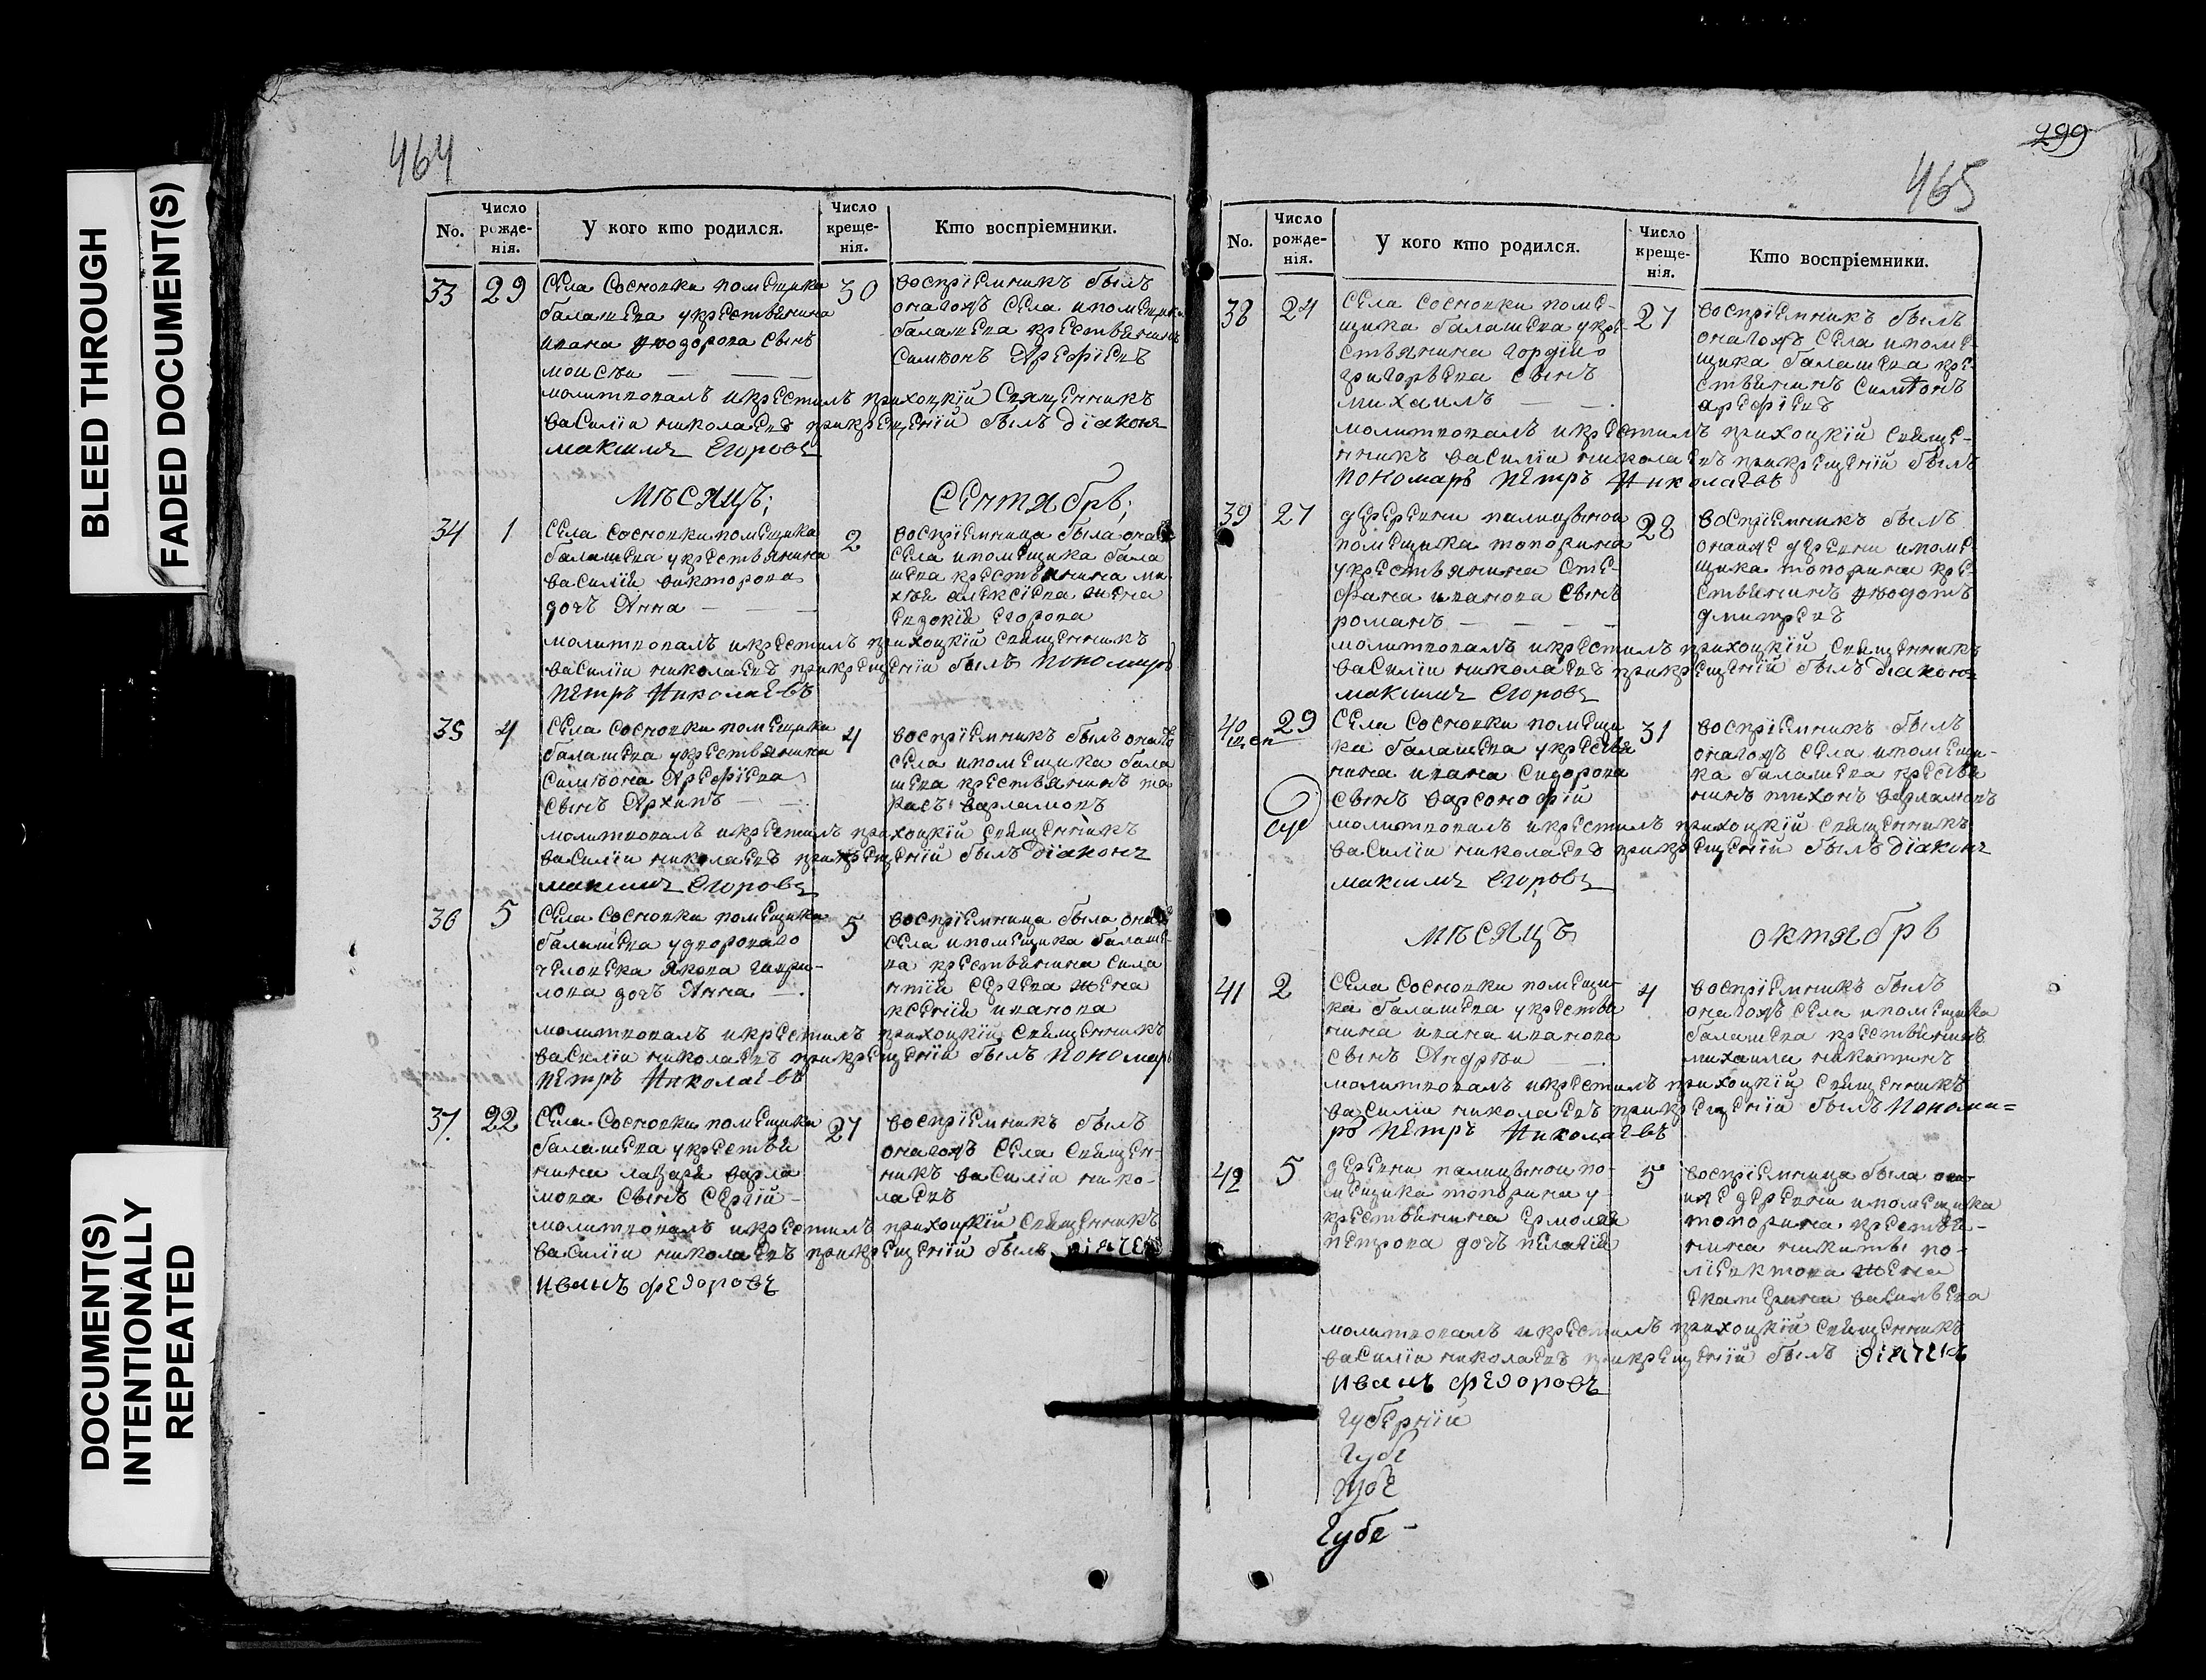 BLEED THROUGH
FADED DOCUMENT(S)
DOCUMENT(S)
INTENTIONALLY
REPEATED
464
No.
Число рожде-нія.
У кого кто родился.
Число креще-нія.
Кто воспріемники.
33
29
Села Сосновки помещика
балашева укрестьянина
ивана феодорова сынъ
моисѣи
30
воспріемникъ былъ
онагожъ села ипомещика
балашева крестьянинъ
Симѣонъ Арефіевъ
молитвовалъ икрестилъ прихоцкій Священникъ
василіи николаевъ прикрещеніи былъ діаконъ
максимъ Егоровъ
МѢСЯЦЪ; СЕНТЯбрЬ;
34
1
Села Сосновки помещика
балашева укрестьянина
василія викторова
дочъ Анна
2
воспріемница была онаго
села ипомещика бала
шева крестьянина ми
хѣя алексіева жена
евдокія егорова
молитвовалъ икрестилъ прихоцкій священникъ
василіи николаевъ прикрещеніи былъ пономарь
Петръ Николаевъ
35
4
Села Сосновки помещика
балашева укрестьянина
Симѣона Арефіева
сынъ Архипъ
4
воспріемникъ былъ онаго
села ипомещика бала
шева крестьянинъ та
расъ варламовъ
молитвовалъ икрестилъ прихоцкій священникъ
василіи николаевъ прикрещеніи былъ діаконъ
максимъ Егоровъ
36
5
Села Сосновки помещика
балашева удвороваго
человека Якова гаври-
лова дочъ Анна
5
воспріемница была онаго
села ипомещика балаше
ва крестьянина сила
нтія сергева жена
ксенія иванова
молитвовалъ икрестилъ прихоцкій священникъ
василіи николаевъ прикрещеніи былъ пономарь
Петръ Николаевъ
37.
22
Села Сосновки помещика
балашева укрестья
нина лазаря варла
мова сынъ Сергій
27
воспріемникъ былъ
онагожъ села священ-
никъ василіи нико-
лаевъ
молитвовалъ икрестилъ прихоцкій священникъ
василіи николаевъ прикрещеніи былъ
Иванъ федоровъ
299
465
No.
Число рожде-нія.
У кого кто родился.
Число креще-нія.
Кто воспріемники.
38
24
Села Сосновки поме-
щика балашева укре-
стьянина гордія
григорьева сынъ
михаилъ
27
воспріемникъ былъ
онагожъ села ипоме-
щика балашева кре-
стьянинъ Симѣонъ
арефіевъ
молитвовалъ икрестилъ прихоцкій священ-
никъ василіи николаевъ прикрещеніи былъ
пономарь Петръ Николаевъ
39
27
деревни палицыной
помещика топорина
укрестьянина сте-
фана иванова сынъ
романъ
28
воспріемникъ былъ
онаиже деревни ипоме-
щика топорина кре-
стьянинъ феодотъ
дмитревъ
молитвовалъ икрестилъ прихоцкій священникъ
василіи николаевъ прикрещеніи былъ діаконъ
максимъ Егоровъ
40
29
Села Сосновки помещи
ка балашева укрестья
нина ивана Сидорова
сынъ варсонофій
31
воспріемникъ былъ
онагожъ села ипомещи-
ка балашева крестья
нинъ тихонъ варламовъ
молитвовалъ икрестилъ прихоцкій священникъ
василіи николаевъ прикрещеніи былъ діаконъ
максимъ Егоровъ
МѢСЯЦЪ октЯбрЬ
41
2
Села Сосновки помещи-
ка балашева укрестья
нина ивана иванова
сынъ Андрѣи
4
воспріемникъ былъ
онагожъ села ипомещика
балашева крестьянинъ
михаила никитинъ
молитвовалъ икрестилъ прихоцкій священникъ
василіи николаевъ прикрещеніи былъ понома=
рь Петръ Николаевъ
42
5
деревни палицыной по-
мещика топорина у-
крестьянина ермолая
петрова дочъ пелагія
5
воспріемница была она-
иже деревни ипомещика
топорина крестья-
нина никиты по-
лиевктова жена
екатерина васильева
молитвовалъ икрестилъ прихоцкій священникъ
василіи николаевъ прикрещеніи былъ діячекъ
Иванъ федоровъ
Губерніи
Губе
Губе
Губе-